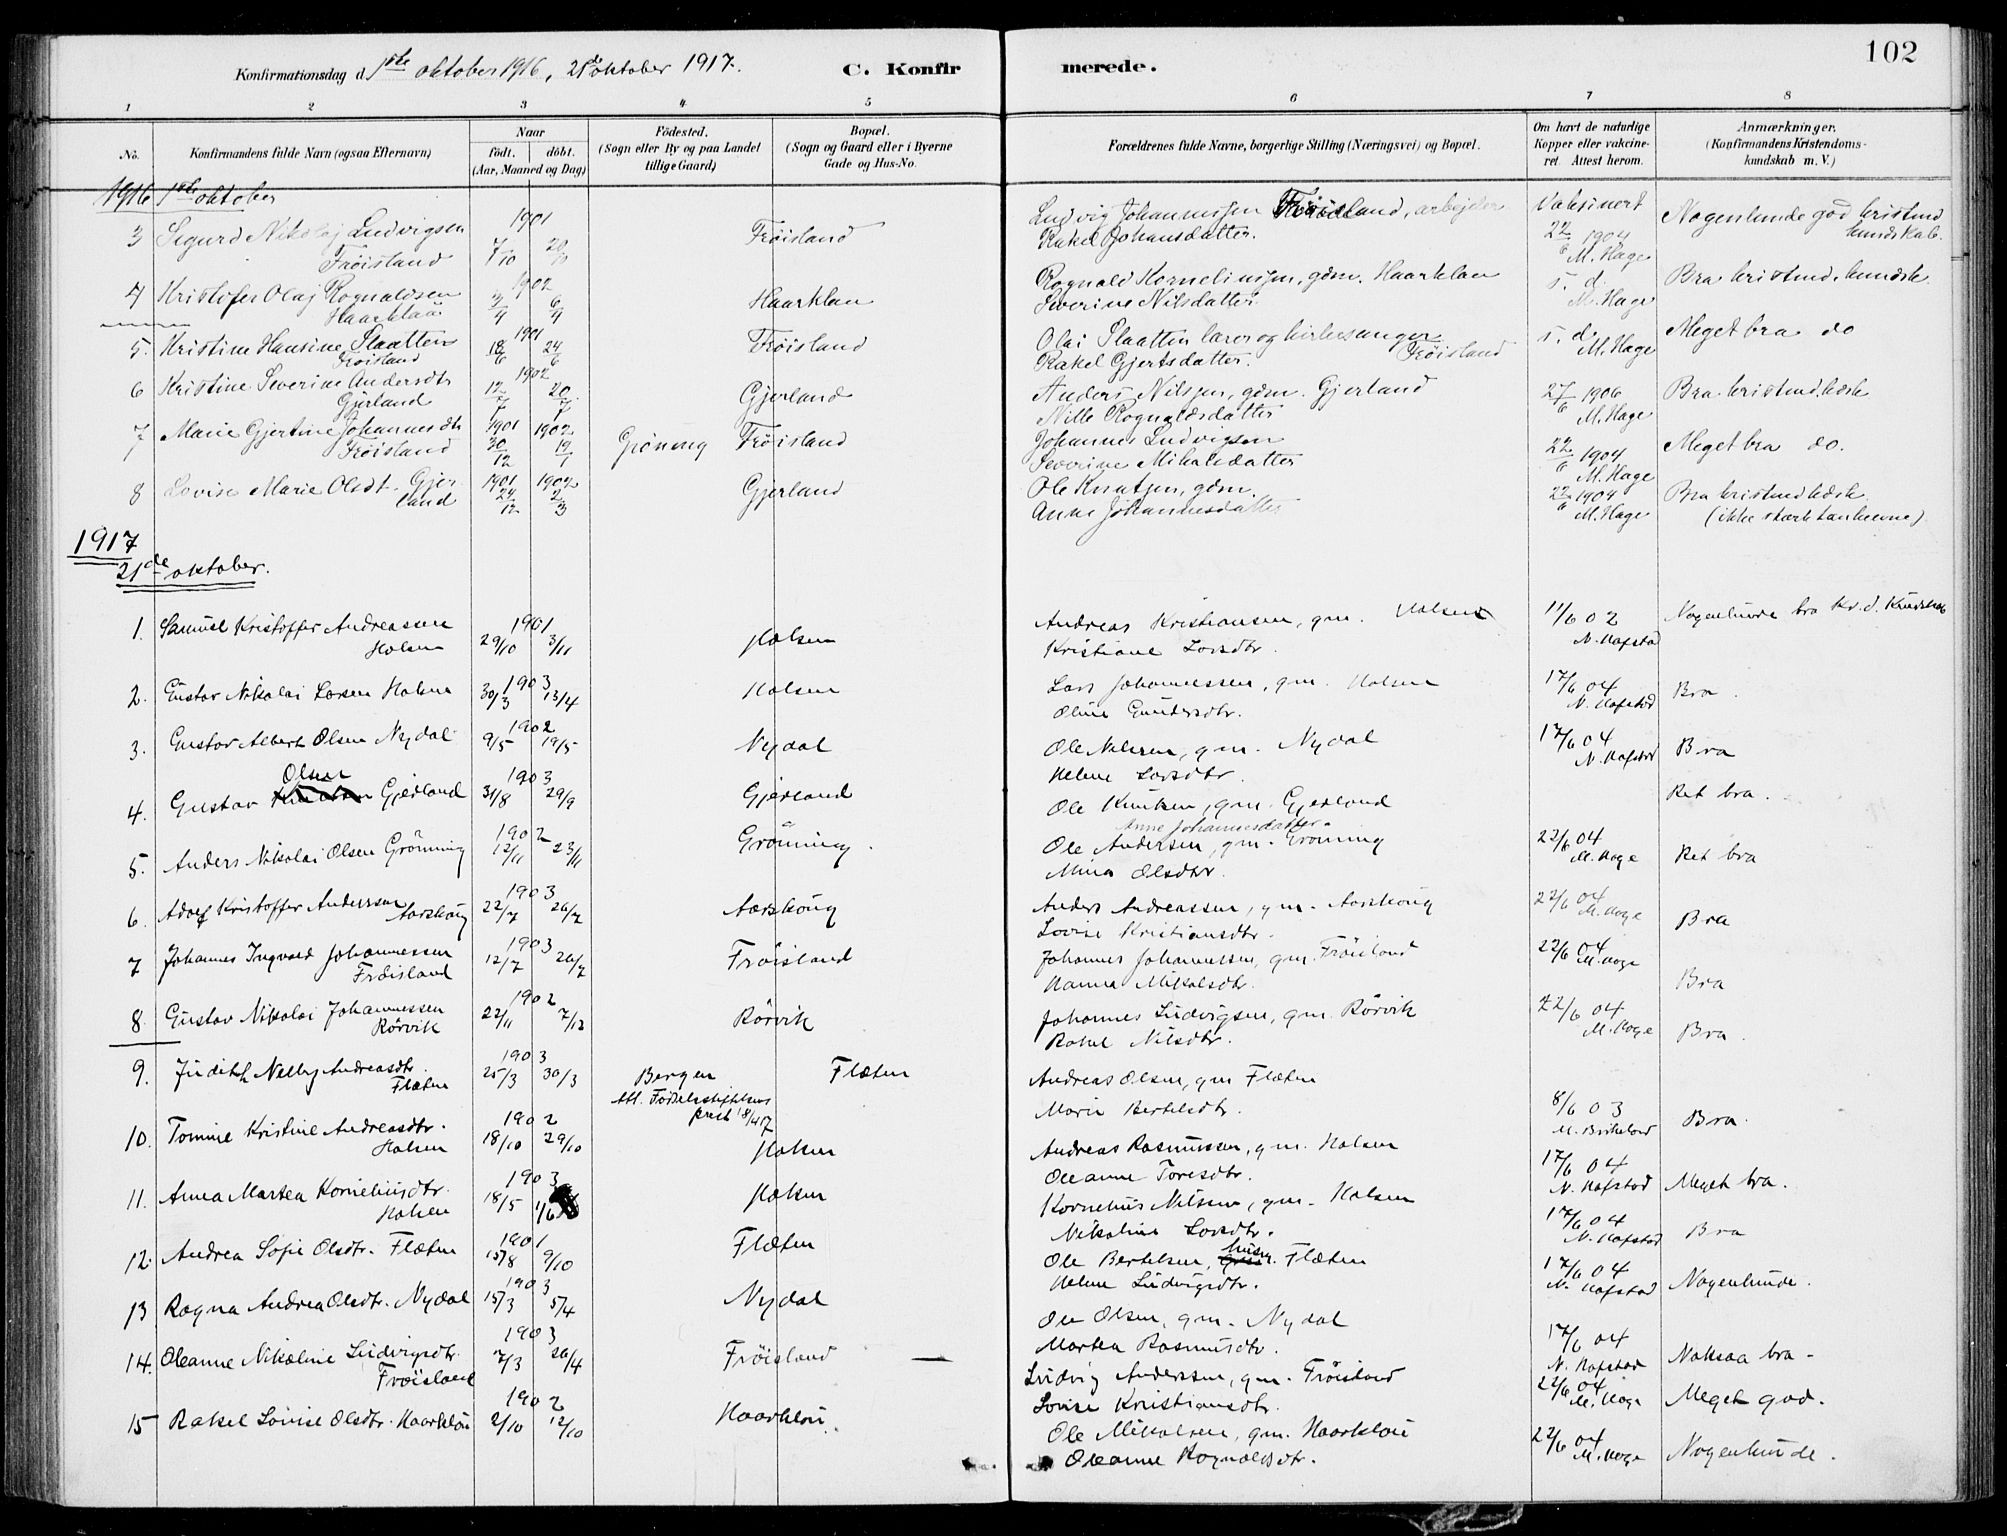 102
Konfirmationsdag d. 1ste oktober 1916, 21de oktober 1917.
C. Konfirmerede.
1 2 3 4 5 6 7 8
No.
Konfirmandens fulde Navn (ogsaa Efternavn)
Naar
födt. döbt.
(Aar, Maaned og Dag)
Födested.
(Sogn eller By og paa Landet
tillige Gaard)
Bopæl.
(Sogn og Gaard eller i Byerne
Gade og Hus-No.
Forældrenes fulde Navne, borgerlige Stilling (Næringsvei) og Bopæl.
Om havt de naturlige
Kopper eller vakcine-
ret. Attest herom.
Anmærkninger.
(Konfirmandens Kristendoms-
kundskab m. V.)
1916 1ste oktober
3 Sigurd Nikolaj Ludvigsen 1901 Frøisland Ludvig Johannessen Frøisland, arbejder Vaksinert Nogenlunde god kristend.
Frøisland 7/10 20/ Rakel Johansdatter. 22/6 1904 M. Hage kundskab.
4 Kristofer Olaj Rognaldsen 1902 Haarklau Rognald Korneliussen, gdm. Haarklau s. d. Bra kristend. kundsk.
Haarklau 3/4 6/4 Severine Nilsdatter. M. Hage
5. Kristine Hansine Slaatten 1901 Frøisland Olai Slaatten lærer og kirkesanger s. d. Meget bra do
Frøisland 18/6 24/6 Rakel Gjertsdatter. Frøisland M. Hage
6 Kristine Severine Andersdtr 1902 Gjerland Anders Nilsen, gdm. Gjerland 27/6 1906 Bra kristend.kdsk
Gjerland 12/7 20/7 Nille Rognaldsdatter M. Hage
7 Marie Gjertine Johannesdtr 1901 1902 Grøning Frøisland Johannes Ludvigsen 22/6 1904 Meget bra do.
Frøisland 30/12 19/1 Severine Mikalsdatter M. Hage
8 Lovise Marie Olsdt. Gjer- 1901 1902 Gjerland Ole Knutsen, gdm. 22/6 1904 Bra kristend kdsk
land 24/12 2/3 Anne Johannesdatter M. Hage (ikke stærk tankeevne)
1917
21de oktober.
1. Samuel Kristoffer Andreassen 1901 Holsen Andreas Kristiansen, gm. Holsen 11/6 02 Nogenlunde bra Kr.d. Kundskab
Holsen 29/10 3/11 Kristiane Larsdtr. N. Hafstad
2. Gustav Nikolai Larsen Holsen 1903 30/3 13/4 Holsen Lars Johannessen, gm. Holsen 17/6 04 Bra.
Oline Gundersdtr. N. Hafstad
3. Gustav Albert Olsen Nydal 1902 9/5 19/5 Nydal Ole Nilsen, gm. Nydal 17/6 04 Bra
Helene Larsdtr. N. Hafstad
4. Gustav Olsen Gjerland 1903 31/8 29/9 Gjerland Ole Knutsen, gm. Gjerland Ret bra.
Anne Johannesdatter.
5. Anders Nikolai Olsen Grönning 1902 12/11 23/11 Grönning. Ole Andersen, gm. Gröning 22/6 04 Ret bra
Mina Olsdtr. M. Hage
6. Adolf Kristoffer Anderssen 1903 Aarskoug Anders Andreassen, gm. Aarskoug 22/6 04 Bra
Aarskoug 22/7 26/7 Lovise Kristiansdtr. M. Hage
7 Johannes Ingvald Johannessen 1903 Fröisland Johannes Johannessen, gm. Fröisland 22/6 04 Bra
Fröisland 12/7 26/7 Hanna Mikalsdtr. M. Hage
8. Gustav Nikolai Johannessen 1902 Rörvik Johannes Ludvigsen, gm. Rörvik 22/6 04 Bra.
Rörvik 22/11 7/12 Rakel Nilsdtr. M. Hage
9. Judith Nelly Andreasdtr. 1903 Bergen Flæten Andreas Olsen, gm Flæten 8/6 03 Bra.
Flæten 25/3 30/3 Att. Födselsstiftelsens prest 18/4 17 Marie Bertelsdtr. M. Birkeland
10. Tomine Kristine Andreasdtr. 1902 Holsen Andreas Rasmussen, gm. Holsen 17/6 04 Meget bra.
Holsen 18/10 29/10 Oleanne Toresdtr. N. Hafstad
11. Anna Martea Korneliusdtr. 1903 Holsen Kornelius Nilsen, gm. Holsen 17/6 04 Bra
Holsen 18/5 1/6 Nikoline Larsdtr. N. Hafstad
12. Andrea Sofie Olsdtr. Flæten 1901 15/8 9/10 Flæten Ole Bertelsen, husm. Flæten 17/6 04 Nogenlunde.
Helene Ludvigsdtr. N. Hafstad
13 Ragna Andrea Olsdtr. Nydal 1903 15/3 5/4 Nydal Ole Olsen, gm. Nydal 17/6 04 Noksaa bra.
Martea Rasmusdtr. N. Hafstad
14. Oleanne Nikoline Ludvigsdtr. 1903 Fröisland — Ludvig Anderssen, gm. Fröisland 22/6 04 Meget god.
Fröisland 7/3 26/4 Lovise Kristiansdtr. M. Hage
15 Rakel Lovise Olsdtr. Haarklau 1902 2/10 12/10 Haarklau. Ole Mikalsen, gm. Haarklau 22/6 04 Nogenlunde.
Oleanne Rognaldsdtr. M. Hage